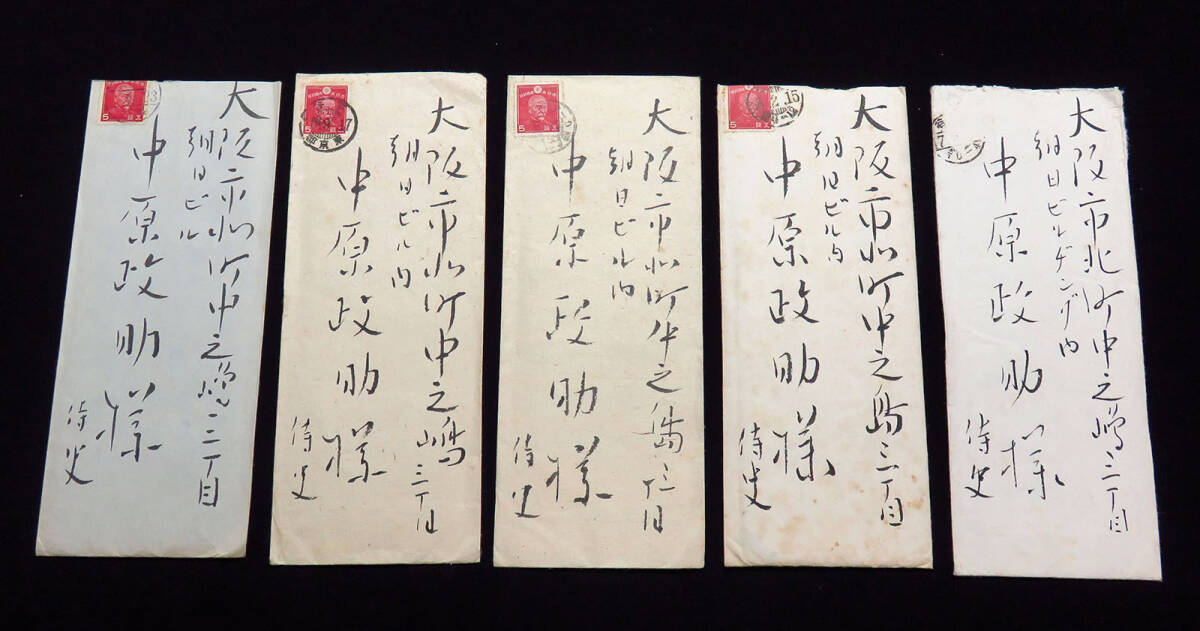 大阪市北区中之嶋三丁目
朝日ビル
中原政助様
侍史
5
大阪市北区中之嶋三丁目
朝日ビル内
中原政助様
侍史
5
大阪市北区中之島三丁目
朝日ビル内
中原政助様
侍史
5
大阪市北区中之島三丁目
朝日ビル内
中原政助様
侍史
5
15
大阪市北区中之嶋三丁目
朝日ビルヂング内
中原政助様
侍史